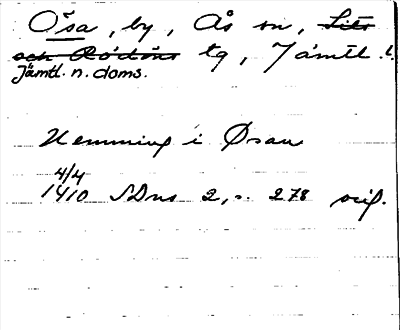 Ösa, by, Ås sn, Lits
och Rödöns tg, Jämtl. l.
Jämtl. n. doms.
Hemming i Øsan
4/4
1410 SDns 2, s. 278 orig.